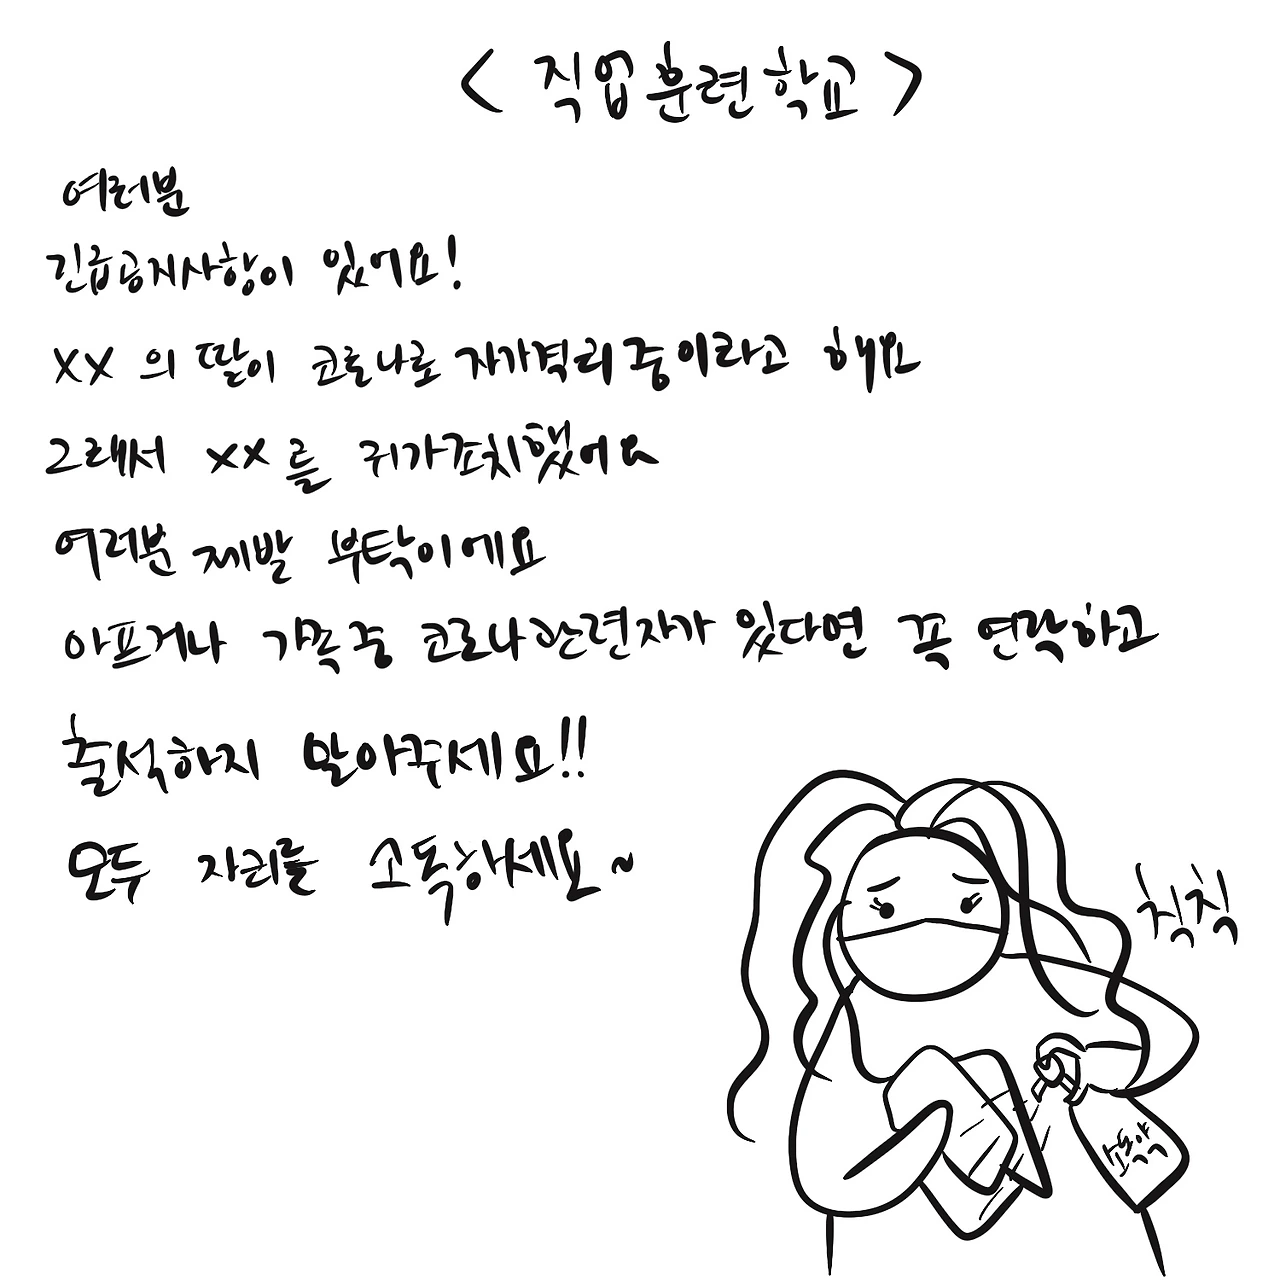 < 직업훈련학교 >
여러분
긴급공지사항이 있어요!
XX 의 딸이 코로나로 자가격리중이라고 해요
그래서 XX를 귀가조치했어요
여러분 제발 부탁이에요
아프거나 가족중 코로나관련자가 있다면 꼭 연락하고
출석하지 말아주세요!!
모두 자리를 소독하세요~
칙칙
소독약